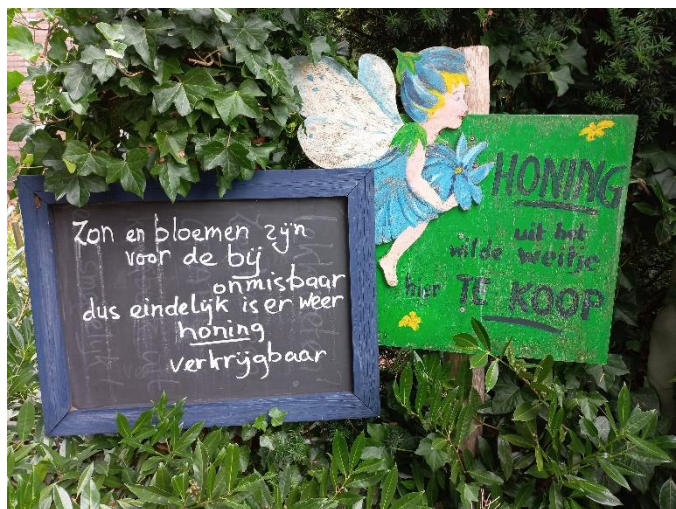 Zon en bloemen zijn
voor de bij
onmisbaar
dus eindelijk is er weer
honing
verkrijgbaar
HONING
uit het
wilde weitje
hier TE KOOP